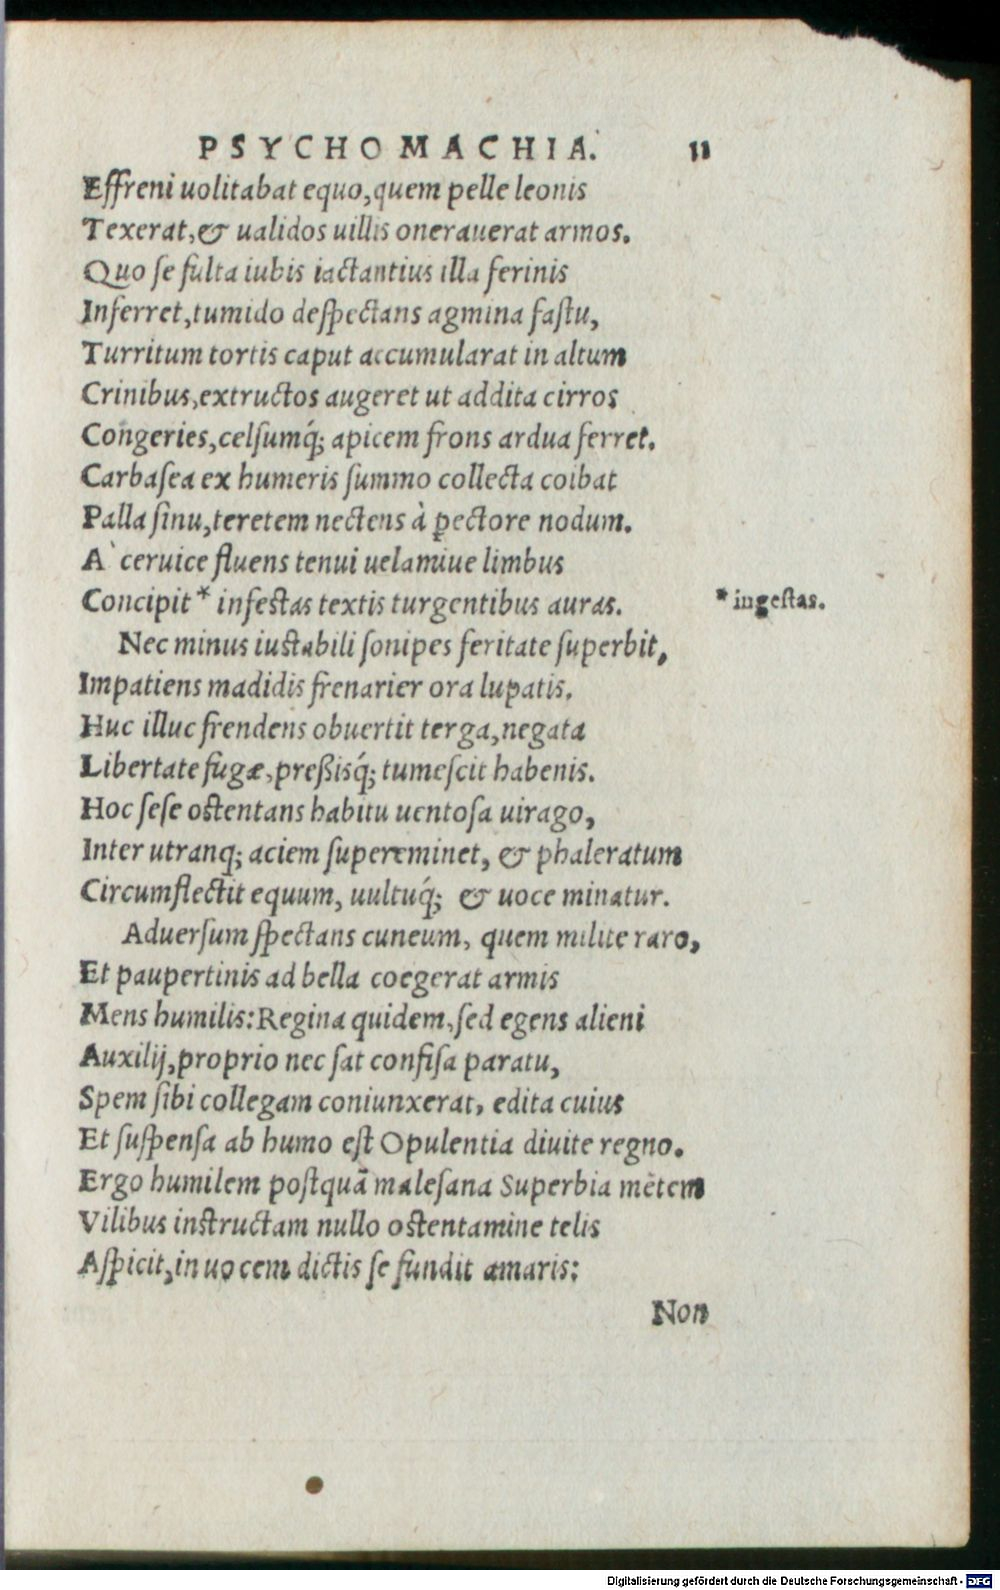 PSYCHOMACHIA. 11
Effreni uolitabat equo, quem pelle leonis
Texerat, & ualidos uillis onerauerat armos.
Quo se fulta iubis iactantius illa ferinis
Inferret, tumido despectans agmina fastu,
Turritum tortis caput accumularat in altum
Crinibus, extructos augeret ut addita cirros
Congeries, celsumq́; apicem frons ardua ferret.
Carbasea ex humeris summo collecta coibat
Palla sinu, teretem nectens à pectore nodum.
A` ceruice fluens tenui uelamiue limbus
Concipit * infestas textis turgentibus auras. * ingestas.
Nec minus iustabili sonipes feritate superbit,
Impatiens madidis frenarier ora lupatis.
Huc illuc frendens obuertit terga, negata
Libertate fugæ, preßisq́; tumescit habenis.
Hoc sese ostentans habitu uentosa uirago,
Inter utranq; aciem supereminet, & phaleratum
Circumflectit equum, uultuq́; & uoce minatur.
Aduersum spectans cuneum, quem milite raro,
Et paupertinis ad bella coegerat armis
Mens humilis: Regina quidem, sed egens alieni
Auxilij, proprio nec sat confisa paratu,
Spem sibi collegam coniunxerat, edita cuius
Et suspensa ab humo est Opulentia diuite regno.
Ergo humilem postquã malesana Superbia mẽtem
Vilibus instructam nullo ostentamine telis
Aspicit, in uocem dictis se fundit amaris:
Non
Digitalisierung gefördert durch die Deutsche Forschungsgemeinschaft - DFG